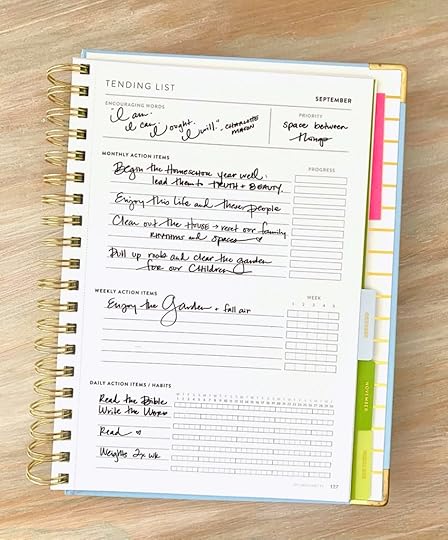 TENDING LIST
SEPTEMBER
ENCOURAGING WORDS
"I am.
I can.
I ought.
I will." - CHARLOTTE
MASON
PRIORITY
space between
things
MONTHLY ACTION ITEMS
PROGRESS
Begin the Homeschool year well:
lead them to TRUTH + BEAUTY.
Enjoy this life and these people
Clean out the HOUSE → reset our family
RHYTHMS and spaces
Pull up roots and clear the garden
for our CHILDREN
WEEKLY ACTION ITEMS
WEEK
1 2 3 4 5
Enjoy the Garden + fall air
DAILY ACTION ITEMS / HABITS
Read the Bible
Write the Word
Read
Weights 2x wk
127
OCTOBER
NOVEMBER